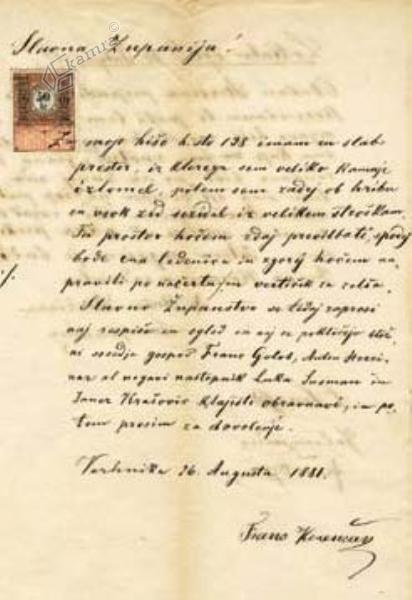 Slavna Županija!
kamra
50
moja hiša h. što 128 imam en slab
prostor, iz kterega sem veliko kamnje
izlomel, potem sem zadej ob hribu
en visok zid sezidal iz velikem stroškam.
Ta prostor hočem zdaj prevelbati, spodej
bode ena ledenica in zgorej hočem na
praviti po načertajm vertiček za
Slavno Županstvo se tedaj zaprosi
naj razpiše en ogled in naj se pokličejo
ni sosedje gospod Franc Golob, Anton
nar al negovi nastopnik Luka in
Janez Krašovic k tajisti obravnavi, in po
tem prosim za dovolenje.
Verhnika 26. Augusta 1881.
Franc